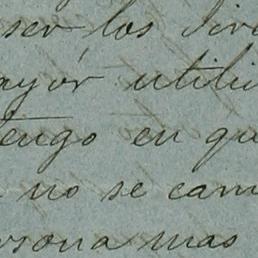 ser los dive
ayor utili
tengo en qu
no se cam
rsona mas